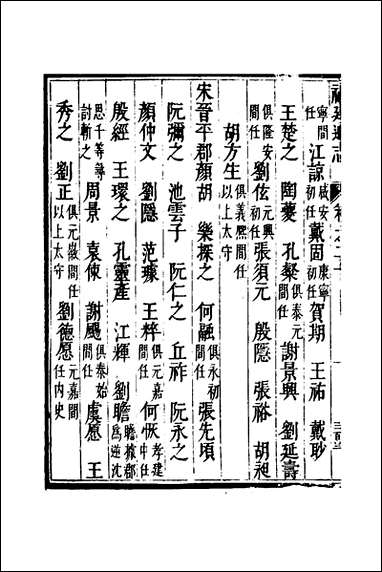 寧間任 江諒 咸安初任 戴固 康寧初任 賀期 王祐 戴眇
王楚之 陶夔 孔粲 俱泰元間任 謝景興 劉延壽
俱隆安間任 劉伭 元興初任 張須元 殷隱 張裕 胡昶
胡方生 俱義熙間任以上太守
宋晉平郡顏胡 樂探之 何融 俱永初間任 張先頃
阮彌之 池雲子 阮仁之 丘祚 阮永之
顏仲文 劉隱 范 王粹 俱元嘉間任 何恢 孝建中任
殷經 王環之 孔靈產 江輝 劉瞻 瞻據郡為逆沈
思千等尋討斬之 周景 袁倲 謝颺 俱泰始間任 虞愿 王
秀之 劉正 俱元徽間任以上太守 劉德愿 俱元嘉間任內史